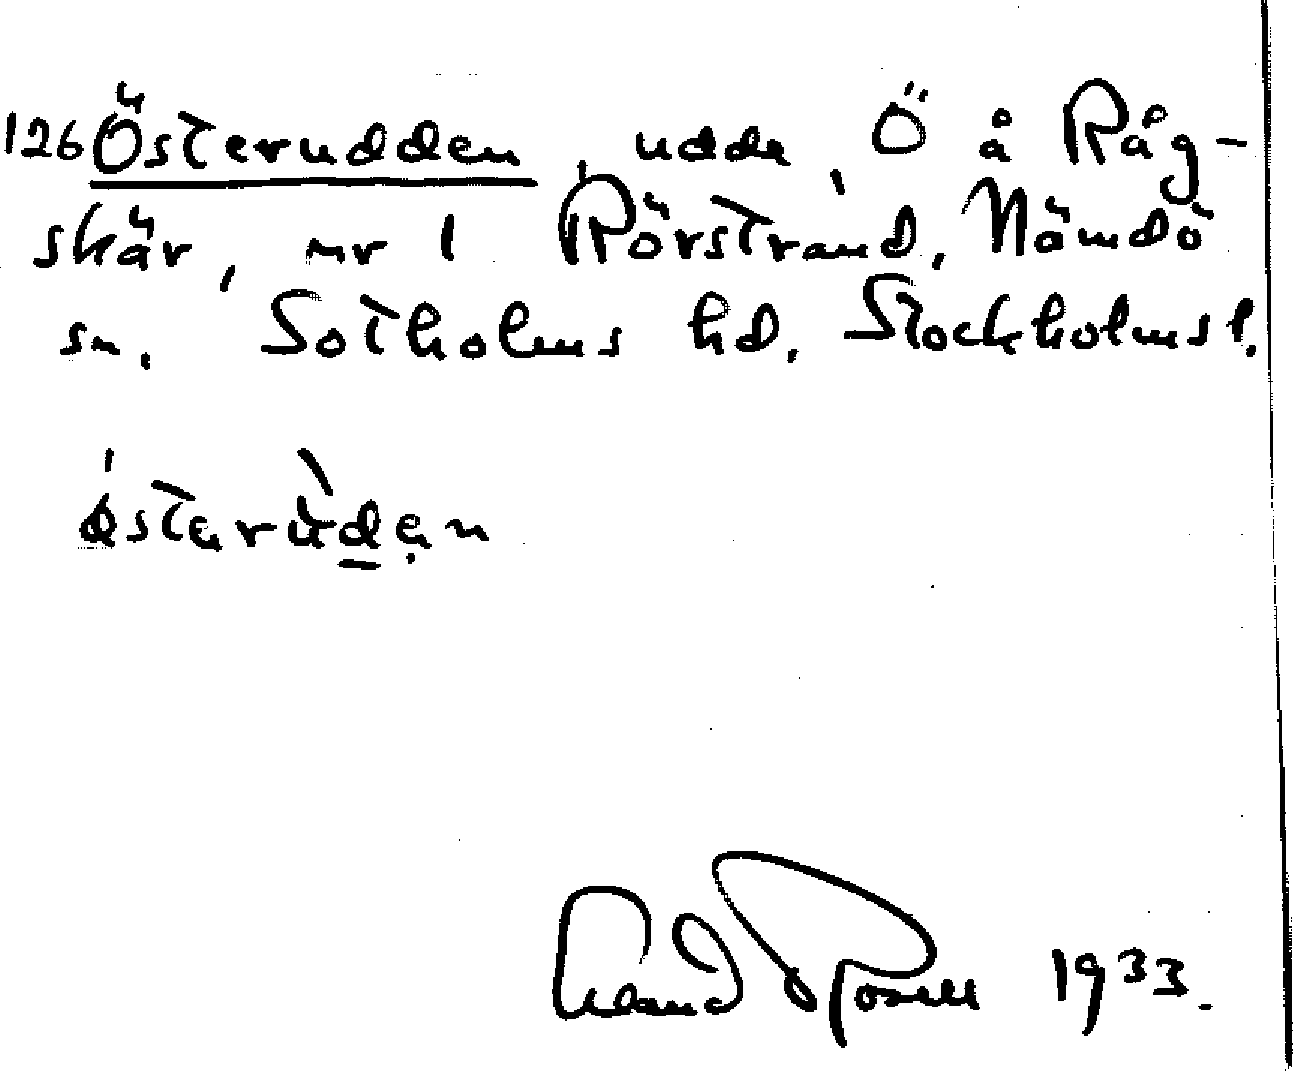 126 Österudden, udde, Ö å Råg-
skär, nr 1 Rörstrand, Nämdö
sn. Sotholms hd. Stockholms l.
østerùden
1933.